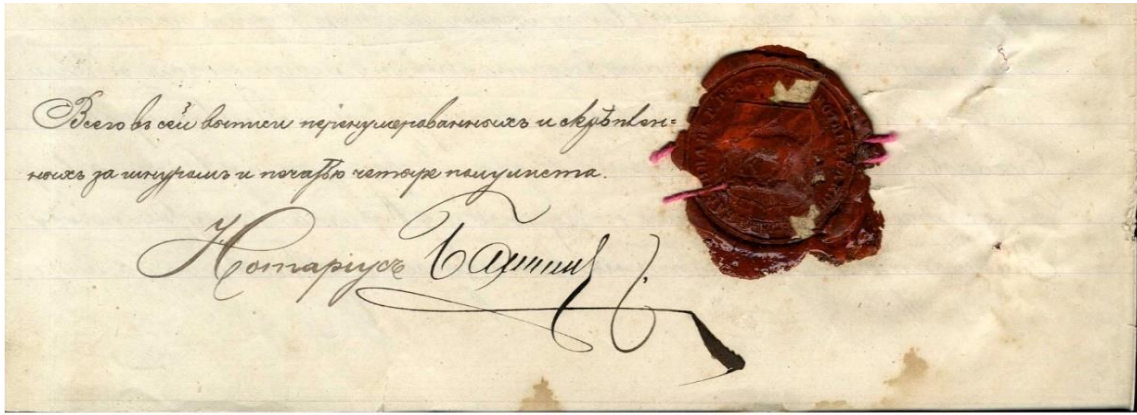 Всего въ сей выписи перенумерованныхъ и скрѣплен=
ныхъ за шнуромъ и печатью четыре полулиста.
Нотаріусъ